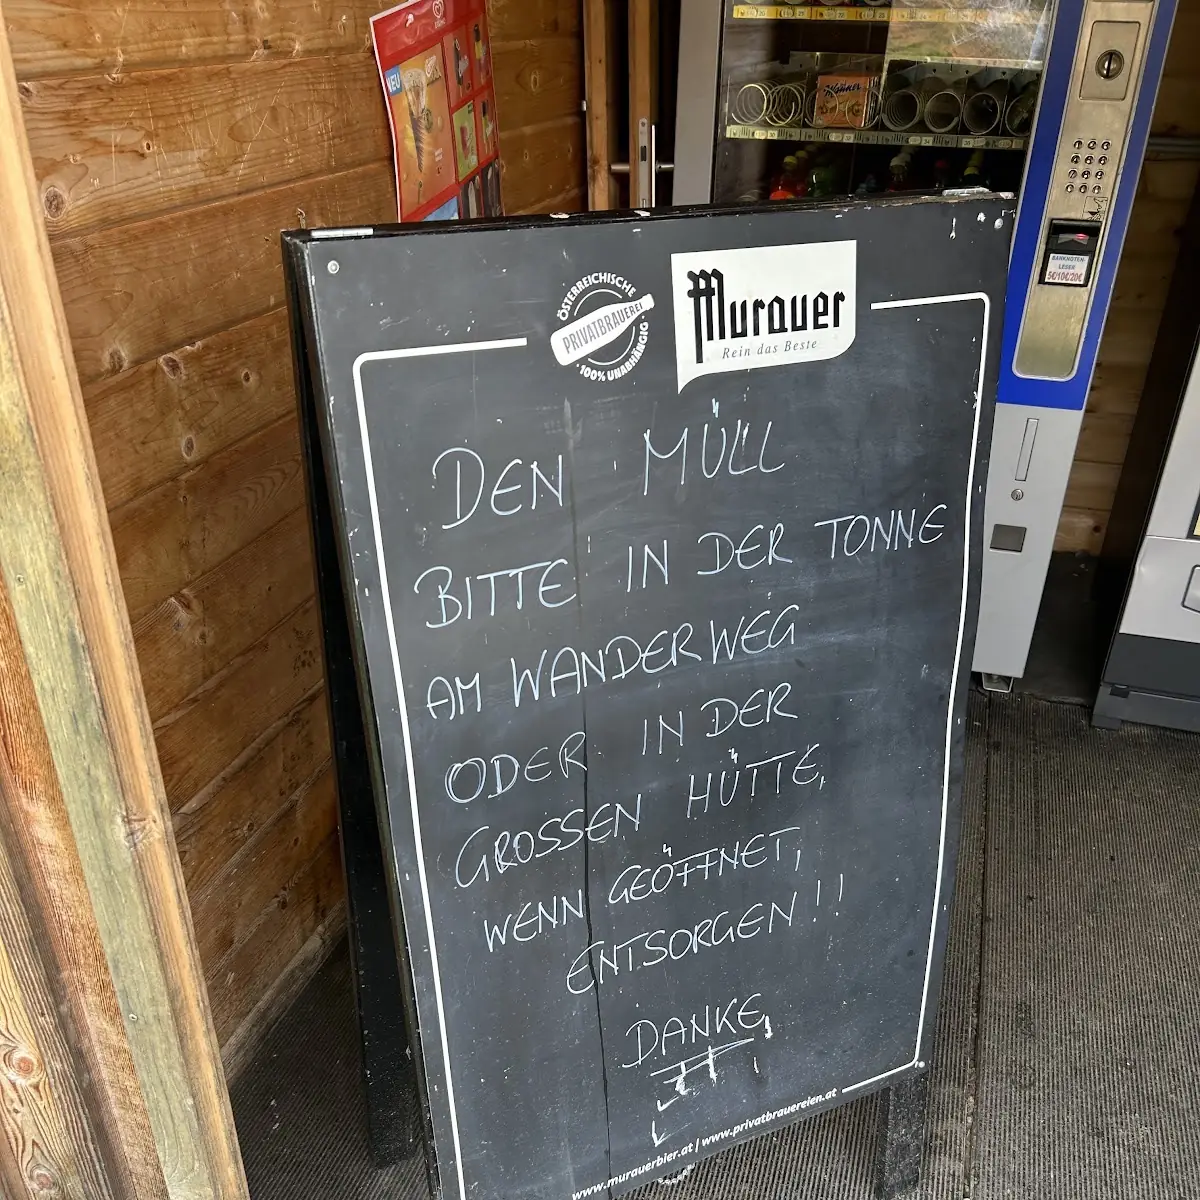 NEU
BANKNOTEN-
LESER
5€/10€/20€
ÖSTERREICHISCHE
PRIVATBRAUEREI
· 100% UNABHÄNGIG ·
Murauer
Rein das Beste
DEN MÜLL
BITTE IN DER TONNE
AM WANDERWEG
ODER IN DER
GROSSEN HÜTTE,
WENN GEÖFFNET,
ENTSORGEN!!
DANKE
www.murauerbier.at | www.privatbrauereien.at